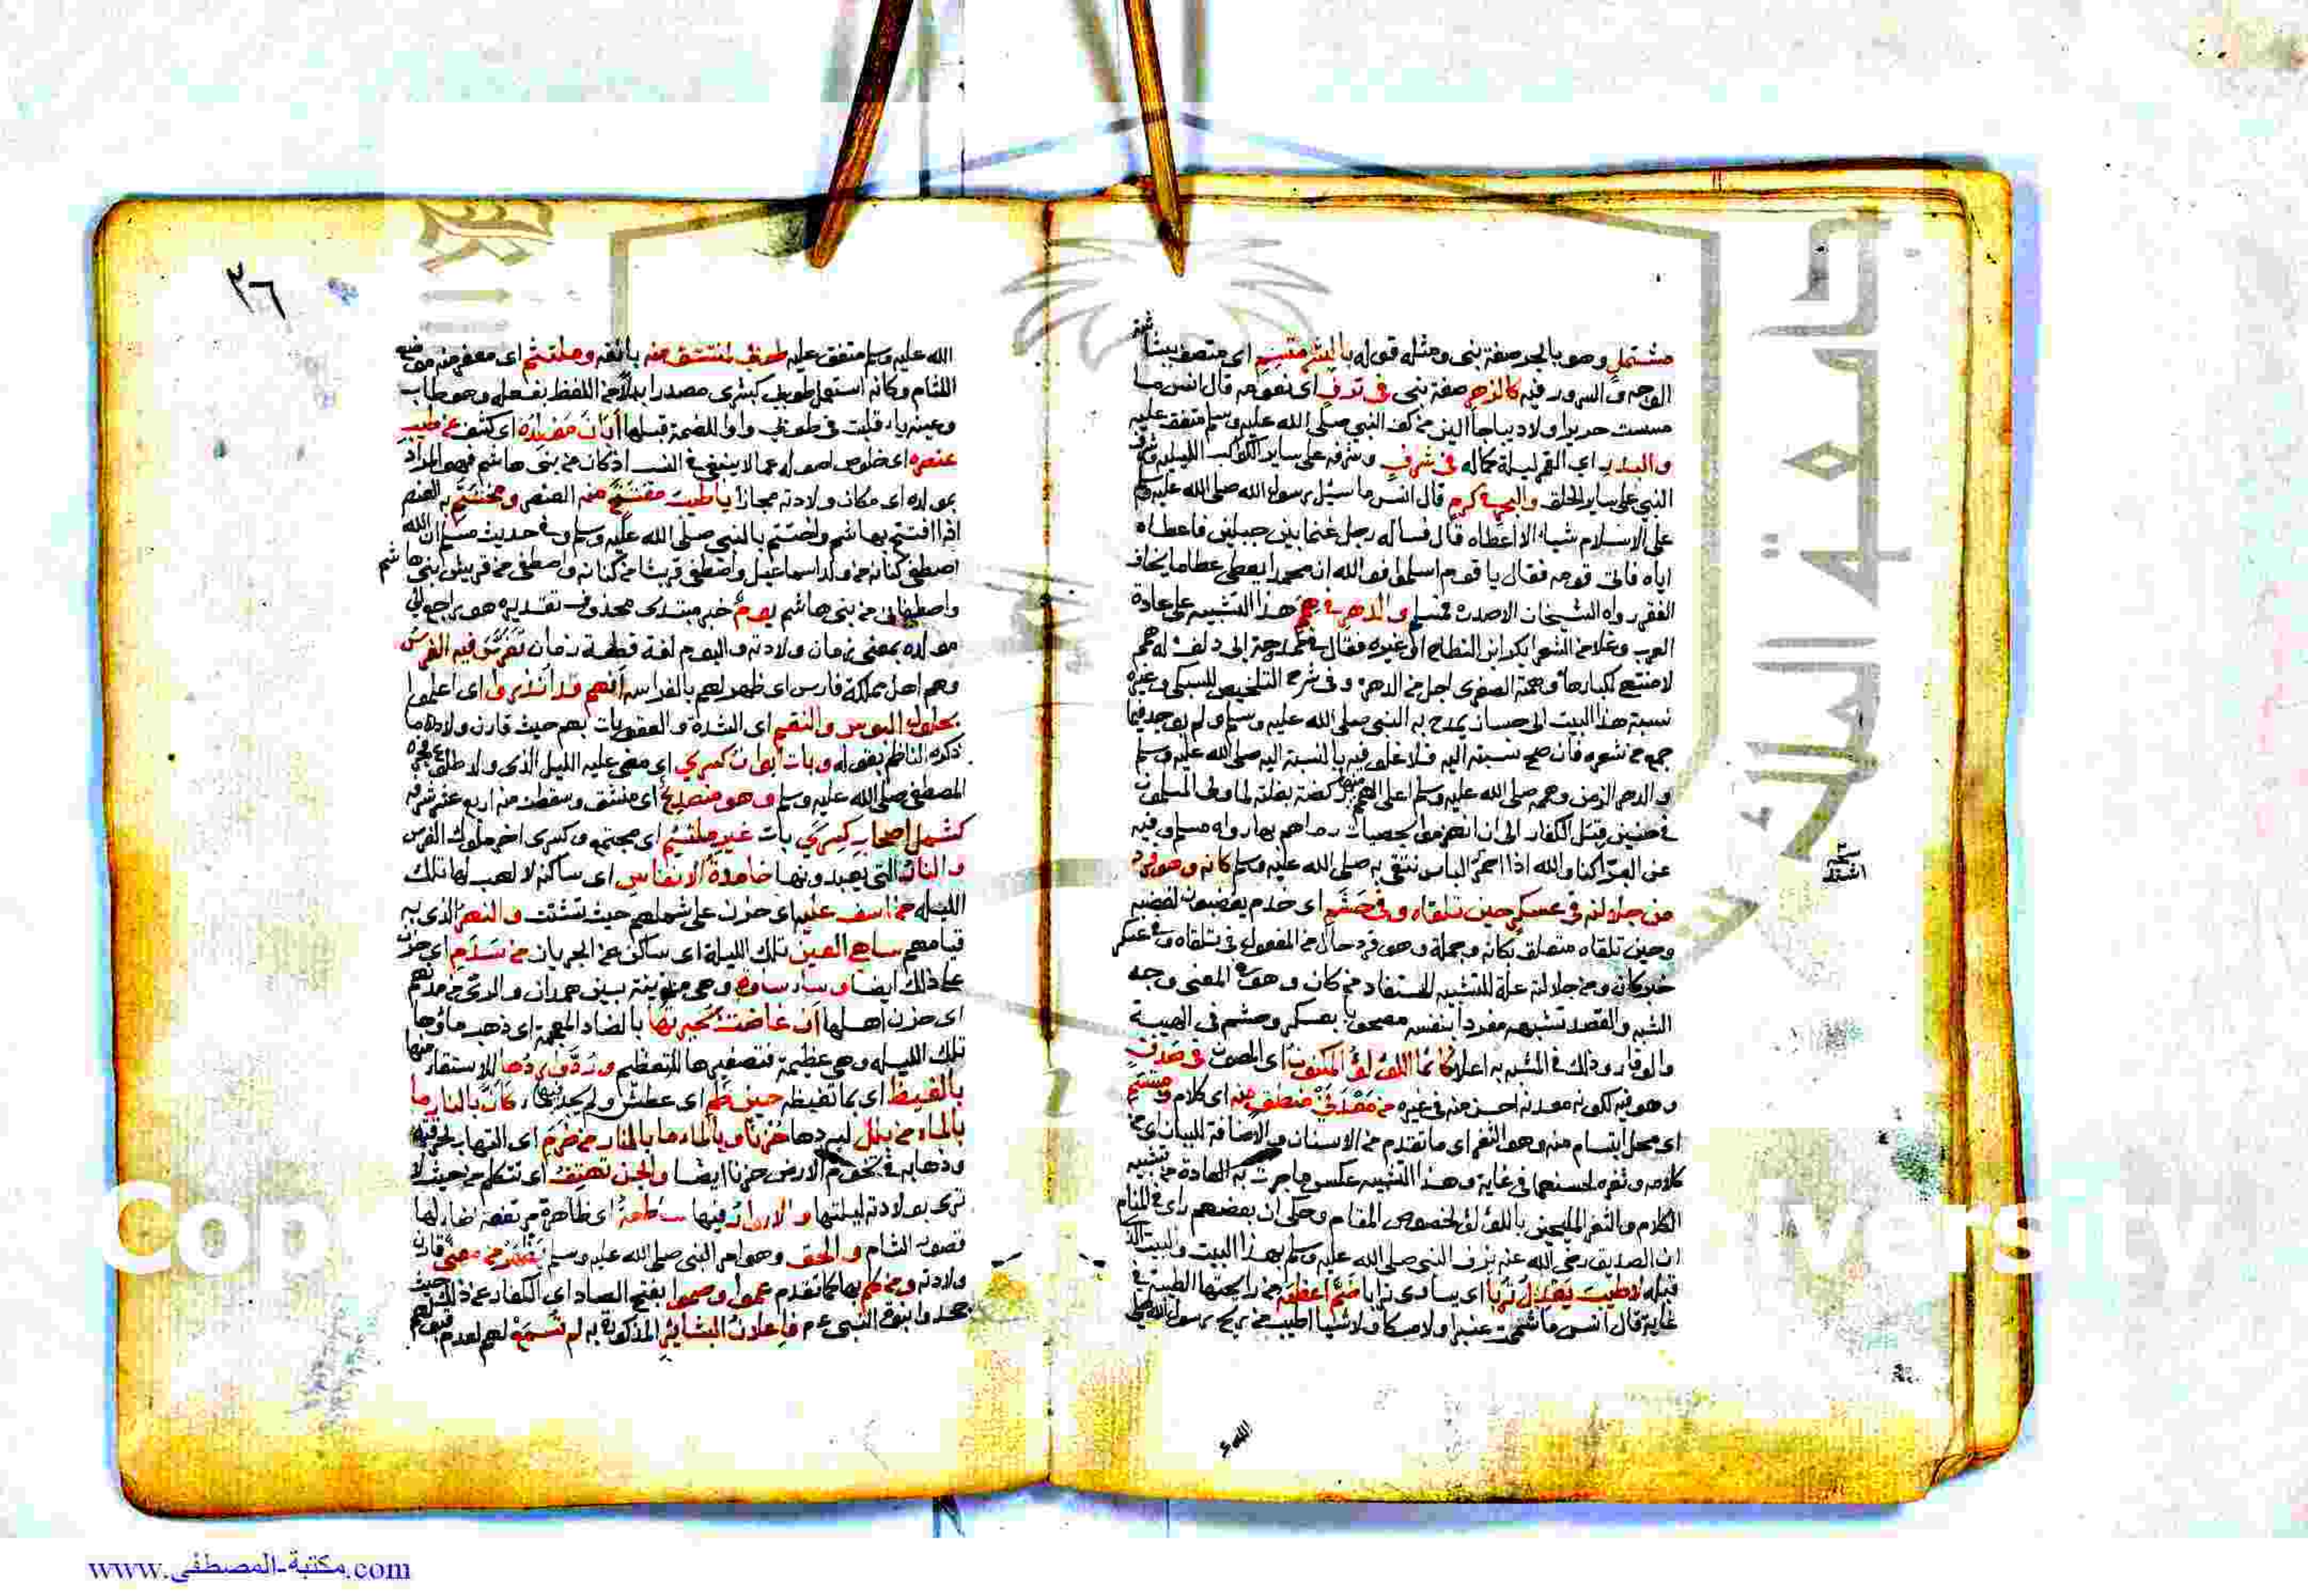 مشتمل وهو بالجر صفة نبي ومثله قوله بالبشر متسم اي متصف ببشاشة
الوجه والسرور فيه كالزهر صفة نبي في ترف اي نعومه قال انس ما
مسست حريرا ولا ديباجا الين من كف النبي صلى الله عليه وسلم متفق عليه
والبدر اي القمر ليلة كماله في شرف وشرفه على ساير الكواكب الليلية وشرف
النبي على ساير الخلق والبحر في كرم قال انس ما سيل رسول الله صلى الله عليه وسلم
على الاسلام شيا الا اعطاه قال فساله رجل غنما بين جبلين فاعطاه
اياه فاتى قومه فقال يا قوم اسلموا فو الله ان محمدا يعطي عطاما يخاف
الفقر رواه الشيخان الا صدره فمسلم والدهر في همم هذا التشبيه على عادة
العرب وغلا من الشعرا بكر ابن النطاح الى غيره فقال في مدحة ابي دلف له همم
لا منتهى لكبارها وهمته الصغرى اجل من الدهر وفي شرح التلخيص للسبكي وغيره
نسبة هذا البيت الى حسان يمدح به النبي صلى الله عليه وسلم ولم يوجد فيما
جمع من شعره فان صح نسبته اليه فلا غلو فيه بالنسبة اليه صلى الله عليه وسلم
والدهر الزمن وهمه صلى الله عليه وسلم اعلى الهمم منها ركضة بغلته لما ولى المسلمون
في حنين قبل الكفار الى ان انهزموا بحصيات رماهم بها رواه مسلم وفيه
عن البرا كنا والله اذا احمر الباس نتقي به صلى الله عليه وسلم كانه وهو فرد
من جلالته في عسكر حين تلقاه وفي حشم اي خدم يغضبون لغضبه
وحين تلقاه متعلق بكانه وجملة وهو فرد حال من المفعول في تلقاه وفي عسكر
خبر كان ومن جلالته علة للتشبيه المستفاد من كان وهو في المعنى وجه
الشبه والقصد تشبيهه مفردا بنفسه مصحوبا بعسكر وحشم في الهيبة
والوقار وذلك في المشبه به اعلا كانما اللؤلؤ المكنون اي المصون في صدف
وهو فيه لكونه معدنه احسن منه في غيره من معدني منطق منه اي كلام ومبتسم
اي محل ابتسام منه وهو الثغر اي ما تقدم من الاسنان والاضافة للبيان اي من
كلامه وثغره لحسنهما في غاية وهذا التشبيه عكس ما جرت به العادة من تشبيه
الكلام والثغر المليحين باللؤلؤ لخصوص المقام وحكي ان بعضهم راى في المنام
ان الصديق رضي الله عنه يزف النبي صلى الله عليه وسلم بهذا البيت والبيت الذي
قبله لا طيب يعدل تربا اي يساوي ترابا ضم اعظمه من رايحتها الطيبة في
غاية قال انس ما شممت عنبرا ولا مسكا ولا شيا اطيب من ريح رسول الله صلى
الله عـ
سـ
اشتد
٣٦
الله عليه وسلم متفق عليه طوبى لمنتشق منه بانفه وملتثم اي معفر منه موضع
اللثام وكانه استعمل طوبى كبشرى مصدرا بدلا من اللفظ بفعله وهو طاب
وعينه ياء قلبت في طوبى واوا للضمة قبلها ابان مولده اي كشف عن طيب
عنصره اي خلوص اصوله عما لا ينبغي في النسب اذ كان من بني هاشم فهو المراد
بمولده اي مكان ولادته مجازا يا طيب مفتتح منه العنصر ومختتم به العنصر
اذا افتتح بهاشم واختتم بالنبي صلى الله عليه وسلم وفي حديث مسلم ان الله
اصطفى كنانه من ولد اسماعيل واصطفى قريشا من كنانه واصطفى من قريش بني هاشم
واصطفاني من بني هاشم يوم خبر مبتدى محذوف تقديره هو راجع الى
مولده بمعنى زمان ولادته واليوم لغة قطعة زمان تفرس فيه الفرس
وهم اهل مملكة فارس اي ظهر لهم بالفراسه انهم قد انذروا اي اعلموا
بحلول البوس والنقم اي الشدة والعقوبات بهم حيث قارن ولاده ما
ذكره الناظم بقوله وبات ايوان كسرى اي مضى عليه الليل الذي ولد طلوع فجره
المصطفى صلى الله عليه وسلم وهو منصدع اي منشق وسقطت منه اربع عشر شرفه
كشمل اصحاب كسرى بات غير ملتئم اي مجتمع وكسرى اخر ملوك الفرس
والنار التي يعبدونها خامدة الانفاس اي ساكنة لا لهب لها تلك
الليله من اسف عليه اي حزن على شملهم حيث تشتت والنهر الذي به
قيامهم ساهي العين تلك الليلة اي ساكن عن الجريان من سدم اي حزن
على ذلك ايضا وساء ساوة وهي مدينة بين همدان والري من مدنهم
اي حزن اهلها ان غاضت بحيرتها بالضاد المعجمة اي ذهب ماؤها
تلك الليله وهي عظيمة فتصغيرها للتعظيم ورد واردها للاستقا منها
بالغيظ اي بما تغيظه حين ظمي اي عطش ولم يجد فيها ماء كان بالنار ما
بالماء من بلل لبردها حزنا وبالماء ما بالنار من ضرم اي التهاب لحرقته
وذهابه في تخوم الارض حزنا ايضا والجن تهتف اي تتكلم من حيث لا
ترى بولادته ليلتها والانوار فيها ساطعة اي ظاهرة مرتفعة اضا لها
قصور الشام والحق وهو امر النبي صلى الله عليه وسلم يظهر من معنى قارن
ولادته ومن كلم بها كما تقدم عموا وصموا بفتح الصاد اي الكفار عن ذلك حيث
جحدوا نبوة النبي عم فاعلان البشائر المذكورة به لم تسمع لهم لعدم قبولهم
www.مكتبة-المصطفى.com